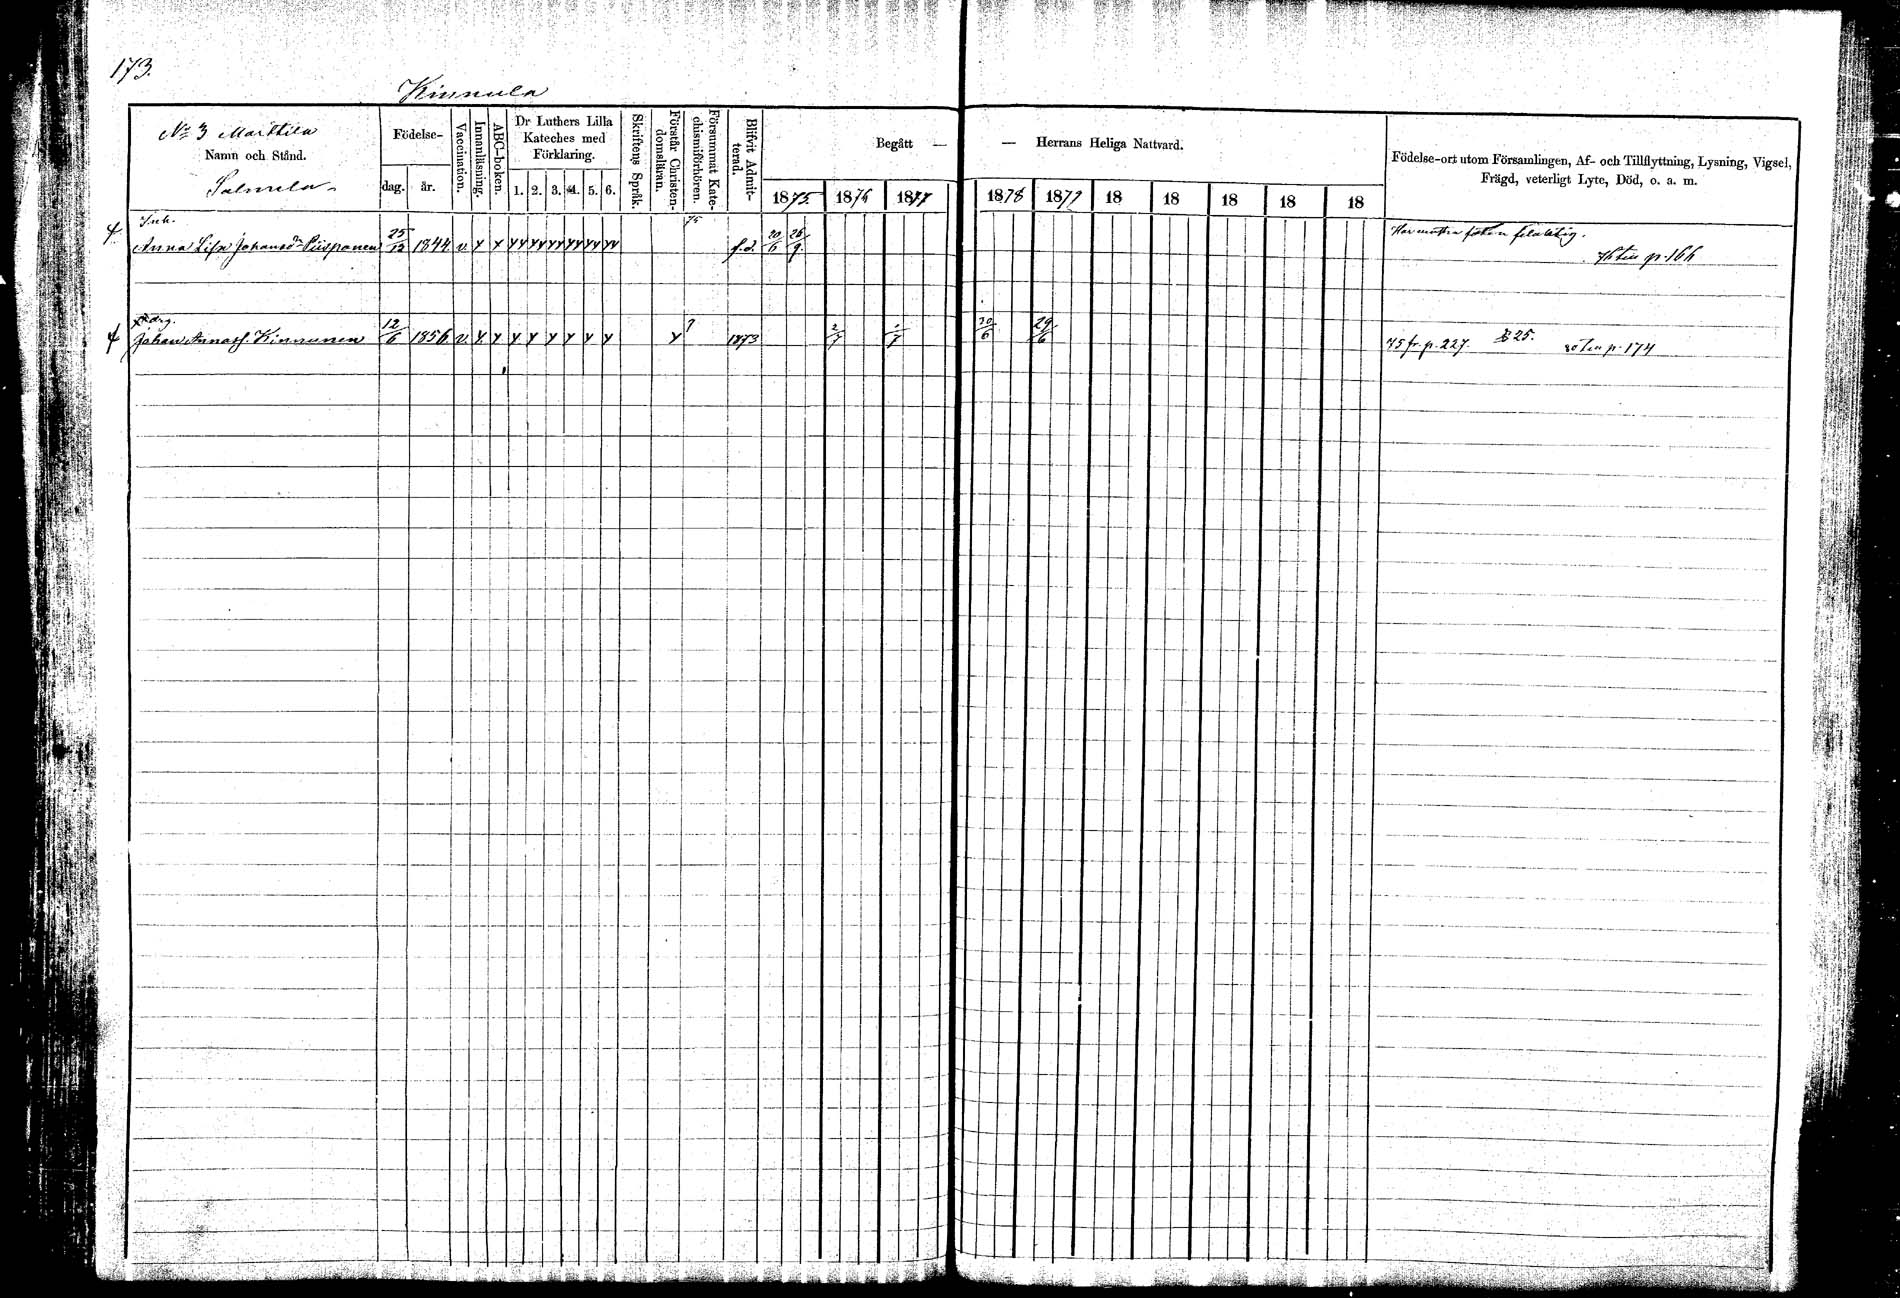 173.
Kinnula
No 3 Marttila
Namn och Stånd.
Salmela
Födelse-
dag.
år.
Vaccination.
Innanläsning.
ABC-boken.
Dr Luthers Lilla
Kateches med
Förklaring.
1. 2. 3. 4. 5. 6.
Skriftens Språk.
Förstår Christen-
domsläran.
Försummat Kate-
chismiförhören.
Blifvit Admit-
terad.
Begått —
— Herrans Heliga Nattvard.
1875 1876 1877 1878 1879 18 18 18 18 18
Födelse-ort utom Församlingen, Af- och Tillflyttning, Lysning, Vigsel,
Frägd, veterligt Lyte, Död, o. a. m.
Inh.
Anna Lisa Johansdr Piispanen 25/12 1844 v. 75 f.d. 20/6 26/9
p. 166
Johan Annass. Kinnunen 12/6 1856 v. 7 1873 2/7 1/7 30/6 29/6 75 fr. p. 227. 25. p. 174